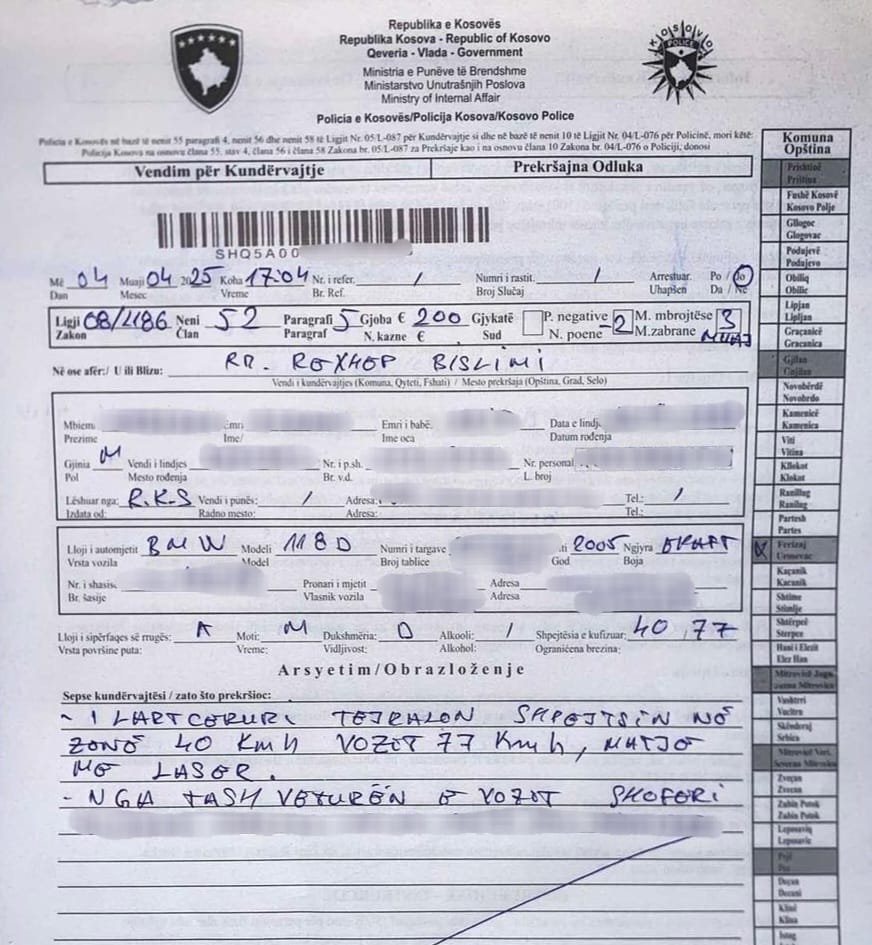 Republika e Kosovës
Republika Kosova - Republic of Kosovo
Qeveria - Vlada - Government
Ministria e Punëve të Brendshme
Ministarstvo Unutrašnjih Poslova
Ministry of Internal Affair
KOSOVO
POLICE
Policia e Kosovës/Policija Kosova/Kosovo Police
Policia e Kosovës në bazë të nenit 55 paragrafi 4, nenit 56 dhe nenit 58 të Ligjit Nr. 05/L-087 për Kundërvajtje si dhe në bazë të nenit 10 të Ligjit Nr. 04/L-076 për Policinë, mori këtë:
Policija Kosova na osnovu člana 55, stav 4, člana 56 i člana 58 Zakona br. 05/L-087 za Prekršaje kao i na osnovu člana 10 Zakona br. 04/L-076 o Policiji, donosi
Vendim për Kundërvajtje Prekršajna Odluka
SHQ5A00
Më 04 Muaji 04 2025 Koha 17:04 Nr. i refer. / Numri i rastit. / Arrestuar. Po / Jo
Dan Mesec Vreme Br. Ref. Broj Slučaj Uhapšen Da / Ne
Ligji 08/L186 Neni 52 Paragrafi 5 Gjoba € 200 Gjykatë P. negative -2 M. mbrojtëse 3
Zakon Član Paragraf N. kazne € Sud N. poene M.zabrane MUAJ
Në ose afër:/ U ili Blizu: RR. REXHEP BISLIMI
Vendi i kundërvajtjes (Komuna, Qyteti, Fshati) / Mesto prekršaja (Opština, Grad, Selo)
Mbiem Emri Emri i babë. Data e lindj.
Prezime Ime/ Ime oca Datum rođenja
Gjinia M Vendi i lindjes Nr. i p.sh. Nr. personal
Pol Mesto rođenja Br. v.d. L. broj
Lëshuar nga: R.K.S Vendi i punës: / Adresa: Tel.: /
Izdata od: Radno mesto: Adresa: Tel.:
Lloji i automjetit BMW Modeli 118D Numri i targave ti 2005 Ngjyra
Vrsta vozila Model Broj tablice God Boja
Nr. i shasis Pronari i mjetit Adresa
Br. šasije Vlasnik vozila Adresa
Lloji i sipërfaqes së rrugës: A Moti: M Dukshmëria: D Alkooli: / Shpejtësia e kufizuar: 40, 77
Vrsta površine puta: Vreme: Vidljivost: Alkohol: Ograničena brezina:
Arsyetim/Obrazloženje
Sepse kundërvajtësi / zato što prekršioc:
- I LARTCEKURI TEJKALON SHPEJTSIN NË
ZONË 40 Kmh VOZIT 77 Kmh, MATJE
ME LASER.
- NGA TASH VETURËN E VOZIT SHOFERI
Komuna
Opština
Prishtinë
Priština
Fushë Kosovë
Kosovo Polje
Gllogoc
Glogovac
Podujevë
Podujevo
Obiliq
Obilic
Lipjan
Lipljan
Graçanicë
Gracanica
Gjilan
Gnjilan
Novobërdë
Novobrdo
Kamenicë
Kamenica
Viti
Vitina
Kllokot
Klokot
Ranillug
Ranilug
Partesh
Partes
X Ferizaj
Urosevac
Kaçanik
Kacanik
Shtime
Stimlje
Shtërpcë
Sterpce
Hani i Elezit
Elez Han
Mitrovicë Jugu
Vushtrri
Vucitrn
Skënderaj
Srbica
Mitrovicë Veri
Severna Mitrovica
Zveçan
Zvecan
Zubin Potok
Zubin Potok
Leposaviq
Leposavic
Pejë
Pec
Deçan
Decani
Klinë
Klina
Istog